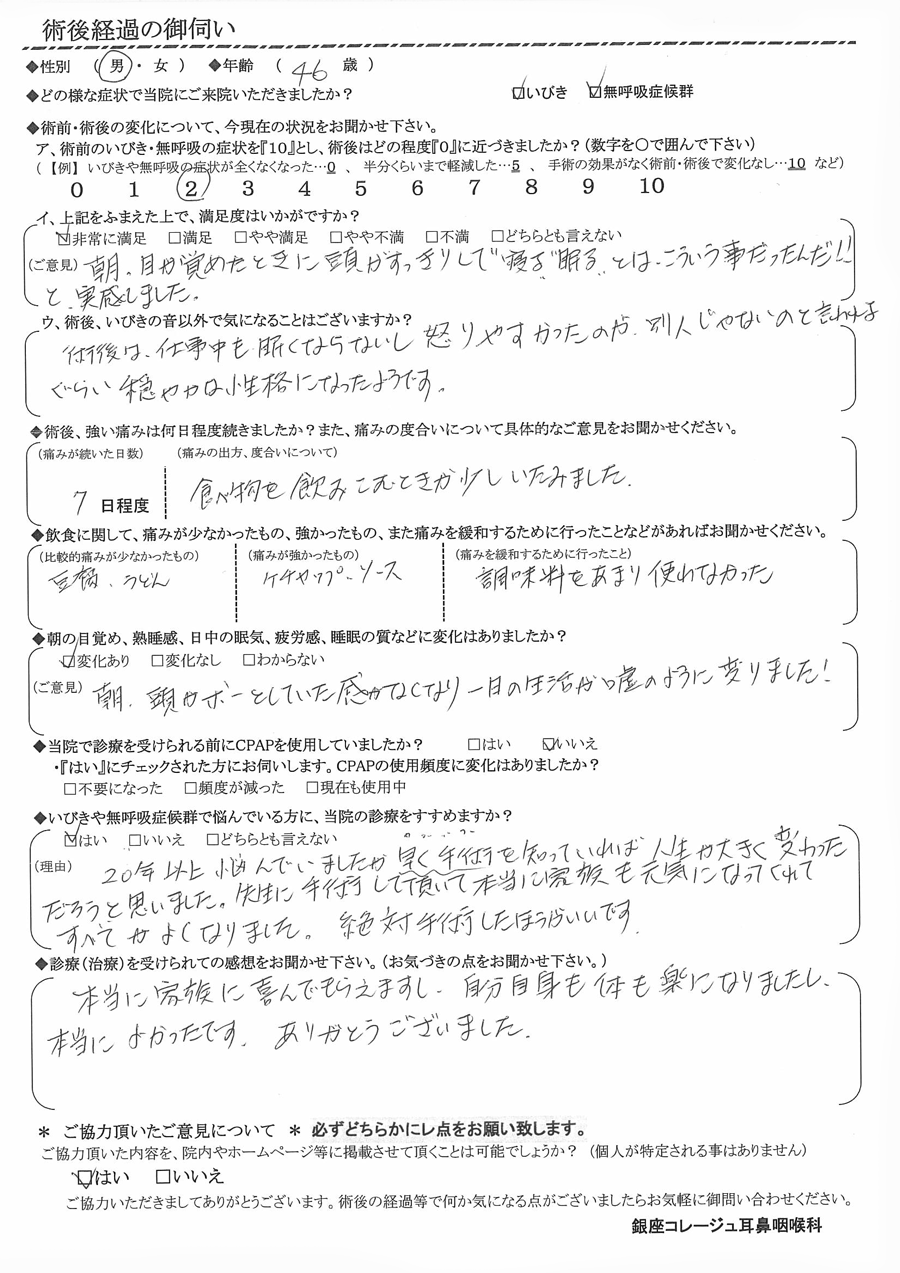 術後経過の御伺い
◆性別 (男・女) ◆年齢 (46 歳)
◆どの様な症状で当院にご来院いただきましたか? ☑いびき ☑無呼吸症候群
◆術前・術後の変化について、今現在の状況をお聞かせ下さい。
ア、術前のいびき・無呼吸の症状を『10』とし、術後はどの程度『0』に近づきましたか?(数字を○で囲んで下さい)
(【例】いびきや無呼吸の症状が全くなくなった…0 、 半分くらいまで軽減した…5 、 手術の効果がなく術前・術後で変化なし…10 など)
0 1 2 3 4 5 6 7 8 9 10
イ、上記をふまえた上で、満足度はいかがですか?
☑非常に満足 □満足 □やや満足 □やや不満 □不満 □どちらとも言えない
(ご意見) 朝、目が覚めたときに頭がすっきりして"寝る""眠る"とは、こういう事だったんだ!!
と、実感しました。
ウ、術後、いびきの音以外で気になることはございますか?
術後は、仕事中も眠くならないし怒りやすかったのが、別人じゃないのと言われる
ぐらい穏やかな性格になったようです。
◆術後、強い痛みは何日程度続きましたか?また、痛みの度合いについて具体的なご意見をお聞かせください。
(痛みが続いた日数) (痛みの出方、度合いについて)
7 日程度 食べ物を飲みこむときが少しいたみました。
◆飲食に関して、痛みが少なかったもの、強かったもの、また痛みを緩和するために行ったことなどがあればお聞かせください。
(比較的痛みが少なかったもの) (痛みが強かったもの) (痛みを緩和するために行ったこと)
豆腐、うどん ケチャップ、ソース 調味料をあまり使わなかった
◆朝の目覚め、熟睡感、日中の眠気、疲労感、睡眠の質などに変化はありましたか?
☑変化あり □変化なし □わからない
(ご意見) 朝、頭がボーとしていた感がなくなり一日の生活が嘘のように変りました!
◆当院で診療を受けられる前にCPAPを使用していましたか? □はい ☑いいえ
・『はい』にチェックされた方にお伺いします。CPAPの使用頻度に変化はありましたか?
□不要になった □頻度が減った □現在も使用中
◆いびきや無呼吸症候群で悩んでいる方に、当院の診療をすすめますか?
☑はい □いいえ □どちらとも言えない
(理由) 20年以上悩んでいましたが早く手術を知っていれば人生が大きく変わった
だろうと思いました。先生に手術して頂いて本当に家族も元気になってくれて
すべてがよくなりました。絶対手術したほうがいいです。
◆診療(治療)を受けられての感想をお聞かせ下さい。(お気づきの点をお聞かせ下さい。)
本当に家族に喜んでもらえますし、自分自身も体も楽になりましたし、
本当によかったです。ありがとうございました。
* ご協力頂いたご意見について * 必ずどちらかにレ点をお願い致します。
ご協力頂いた内容を、院内やホームページ等に掲載させて頂くことは可能でしょうか? (個人が特定される事はありません)
☑はい □いいえ
ご協力いただきましてありがとうございます。術後の経過等で何か気になる点がございましたらお気軽に御問い合わせください。
銀座コレージュ耳鼻咽喉科